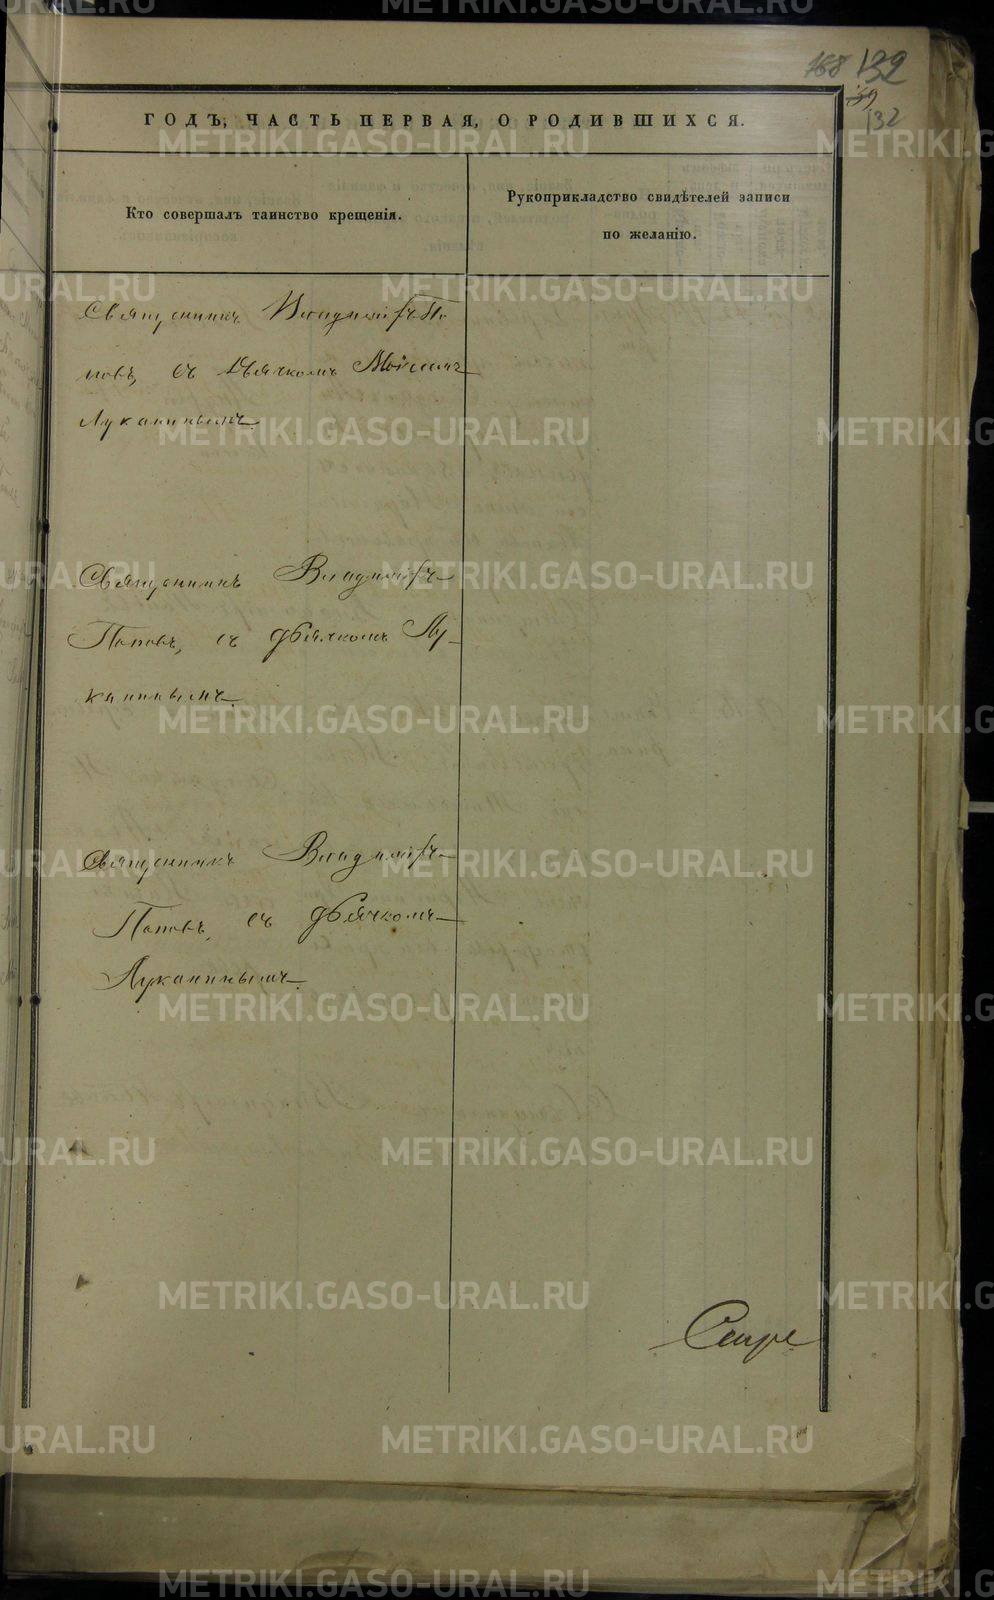 168 132
132
ГОДЪ, ЧАСТЬ ПЕРВАЯ, О РОДИВШИХСЯ.
Кто совершалъ таинство крещенія.
Рукоприкладство свидѣтелей записи
по желанію.
Священникъ Владиміръ По
повъ, съ Дьячкомъ Моѵсеемъ
Луканинымъ.
Священникъ Владиміръ
Поповъ, съ дьячкомъ Лу-
канинымъ.
Священникъ Владиміръ
Поповъ, съ дьячкомъ
Луканинымъ.
METRIKI.GASO-URAL.RU